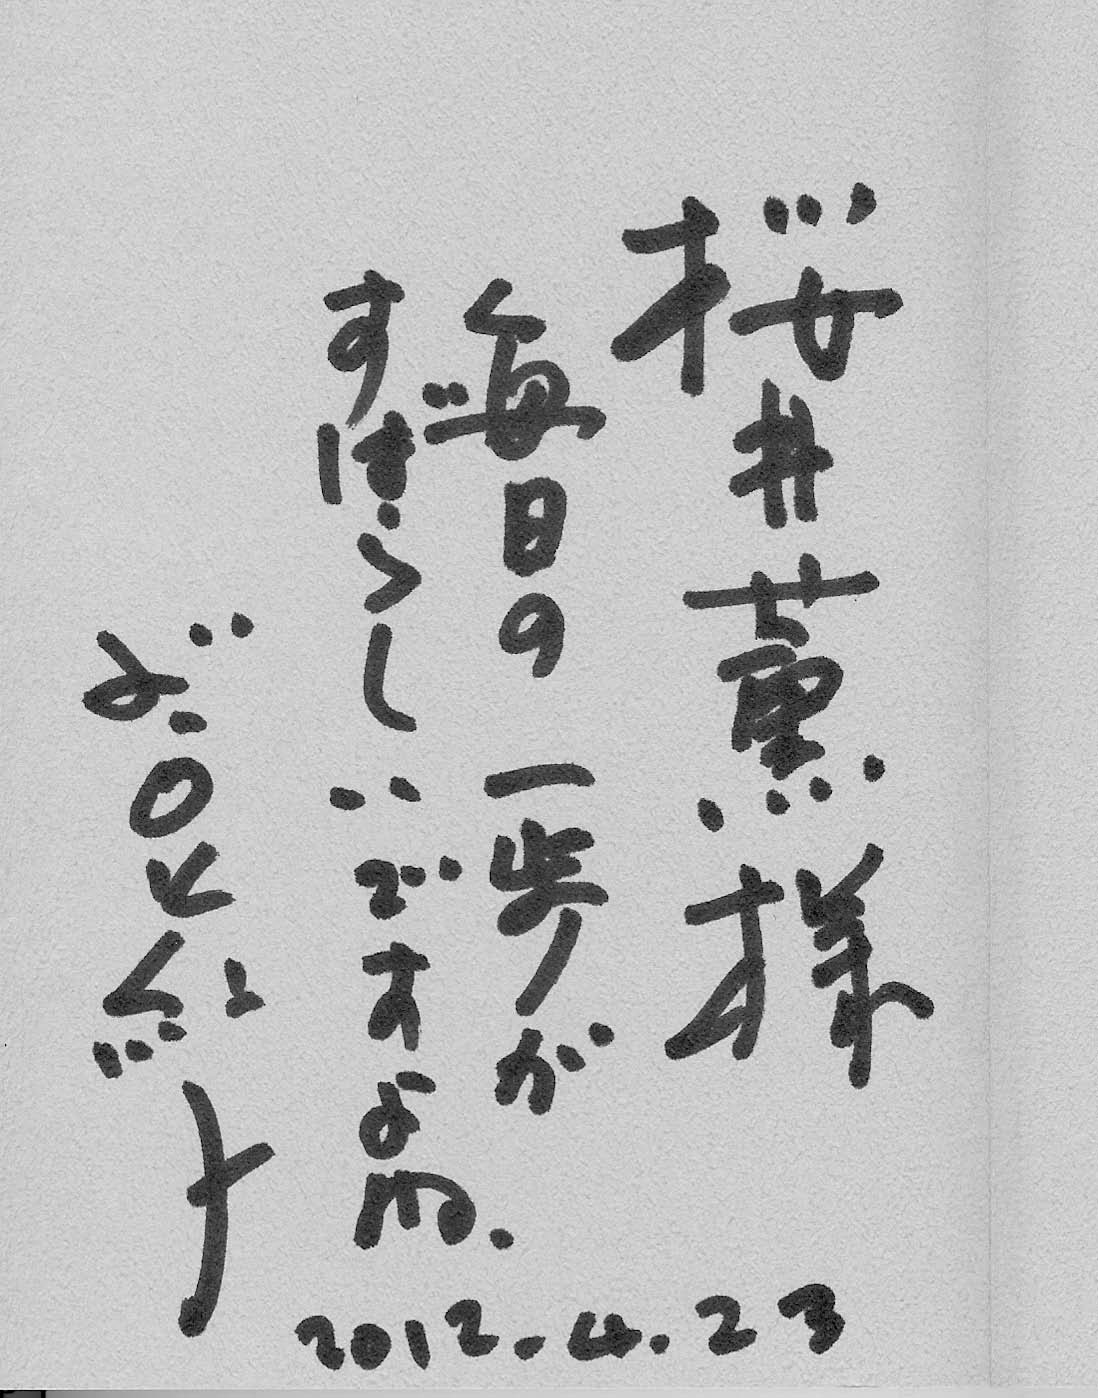 桜井薫様
毎日の一歩が
すばらしいですよね.
2012.4.23